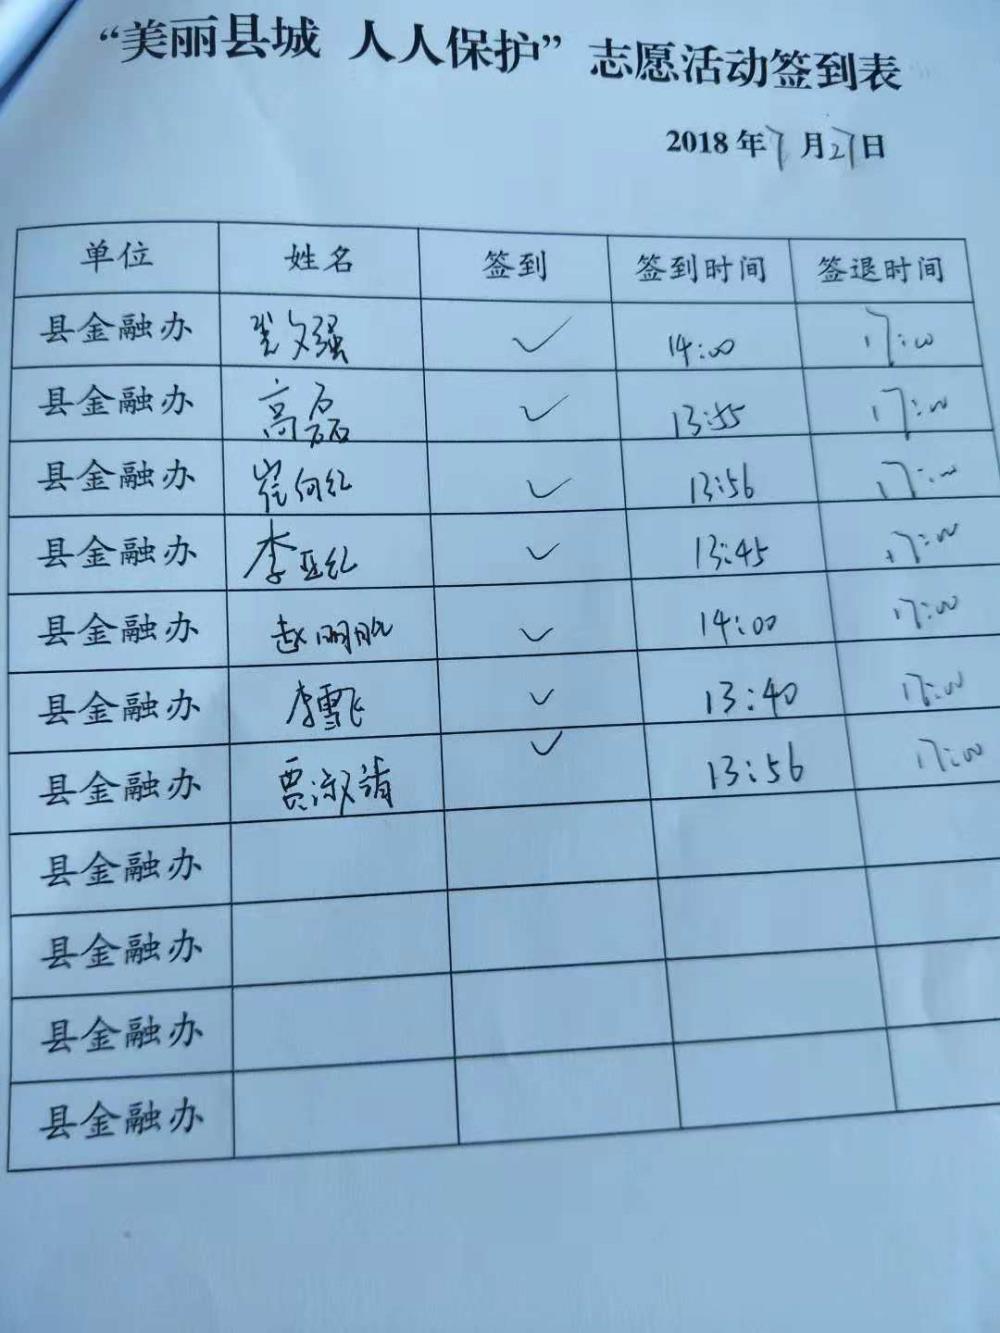 “美丽县城 人人保护”志愿活动签到表
2018年7月27日
单位 姓名 签到 签到时间 签退时间
县金融办 文强 ✓ 14:00 17:00
县金融办 高磊 ✓ 13:55 17:00
县金融办 崔向红 ✓ 13:56 17:00
县金融办 李亚红 ✓ 13:45 17:00
县金融办 赵丽 ✓ 14:00 17:00
县金融办 李雪飞 ✓ 13:40 17:00
县金融办 贾淑清 ✓ 13:56 17:00
县金融办
县金融办
县金融办
县金融办